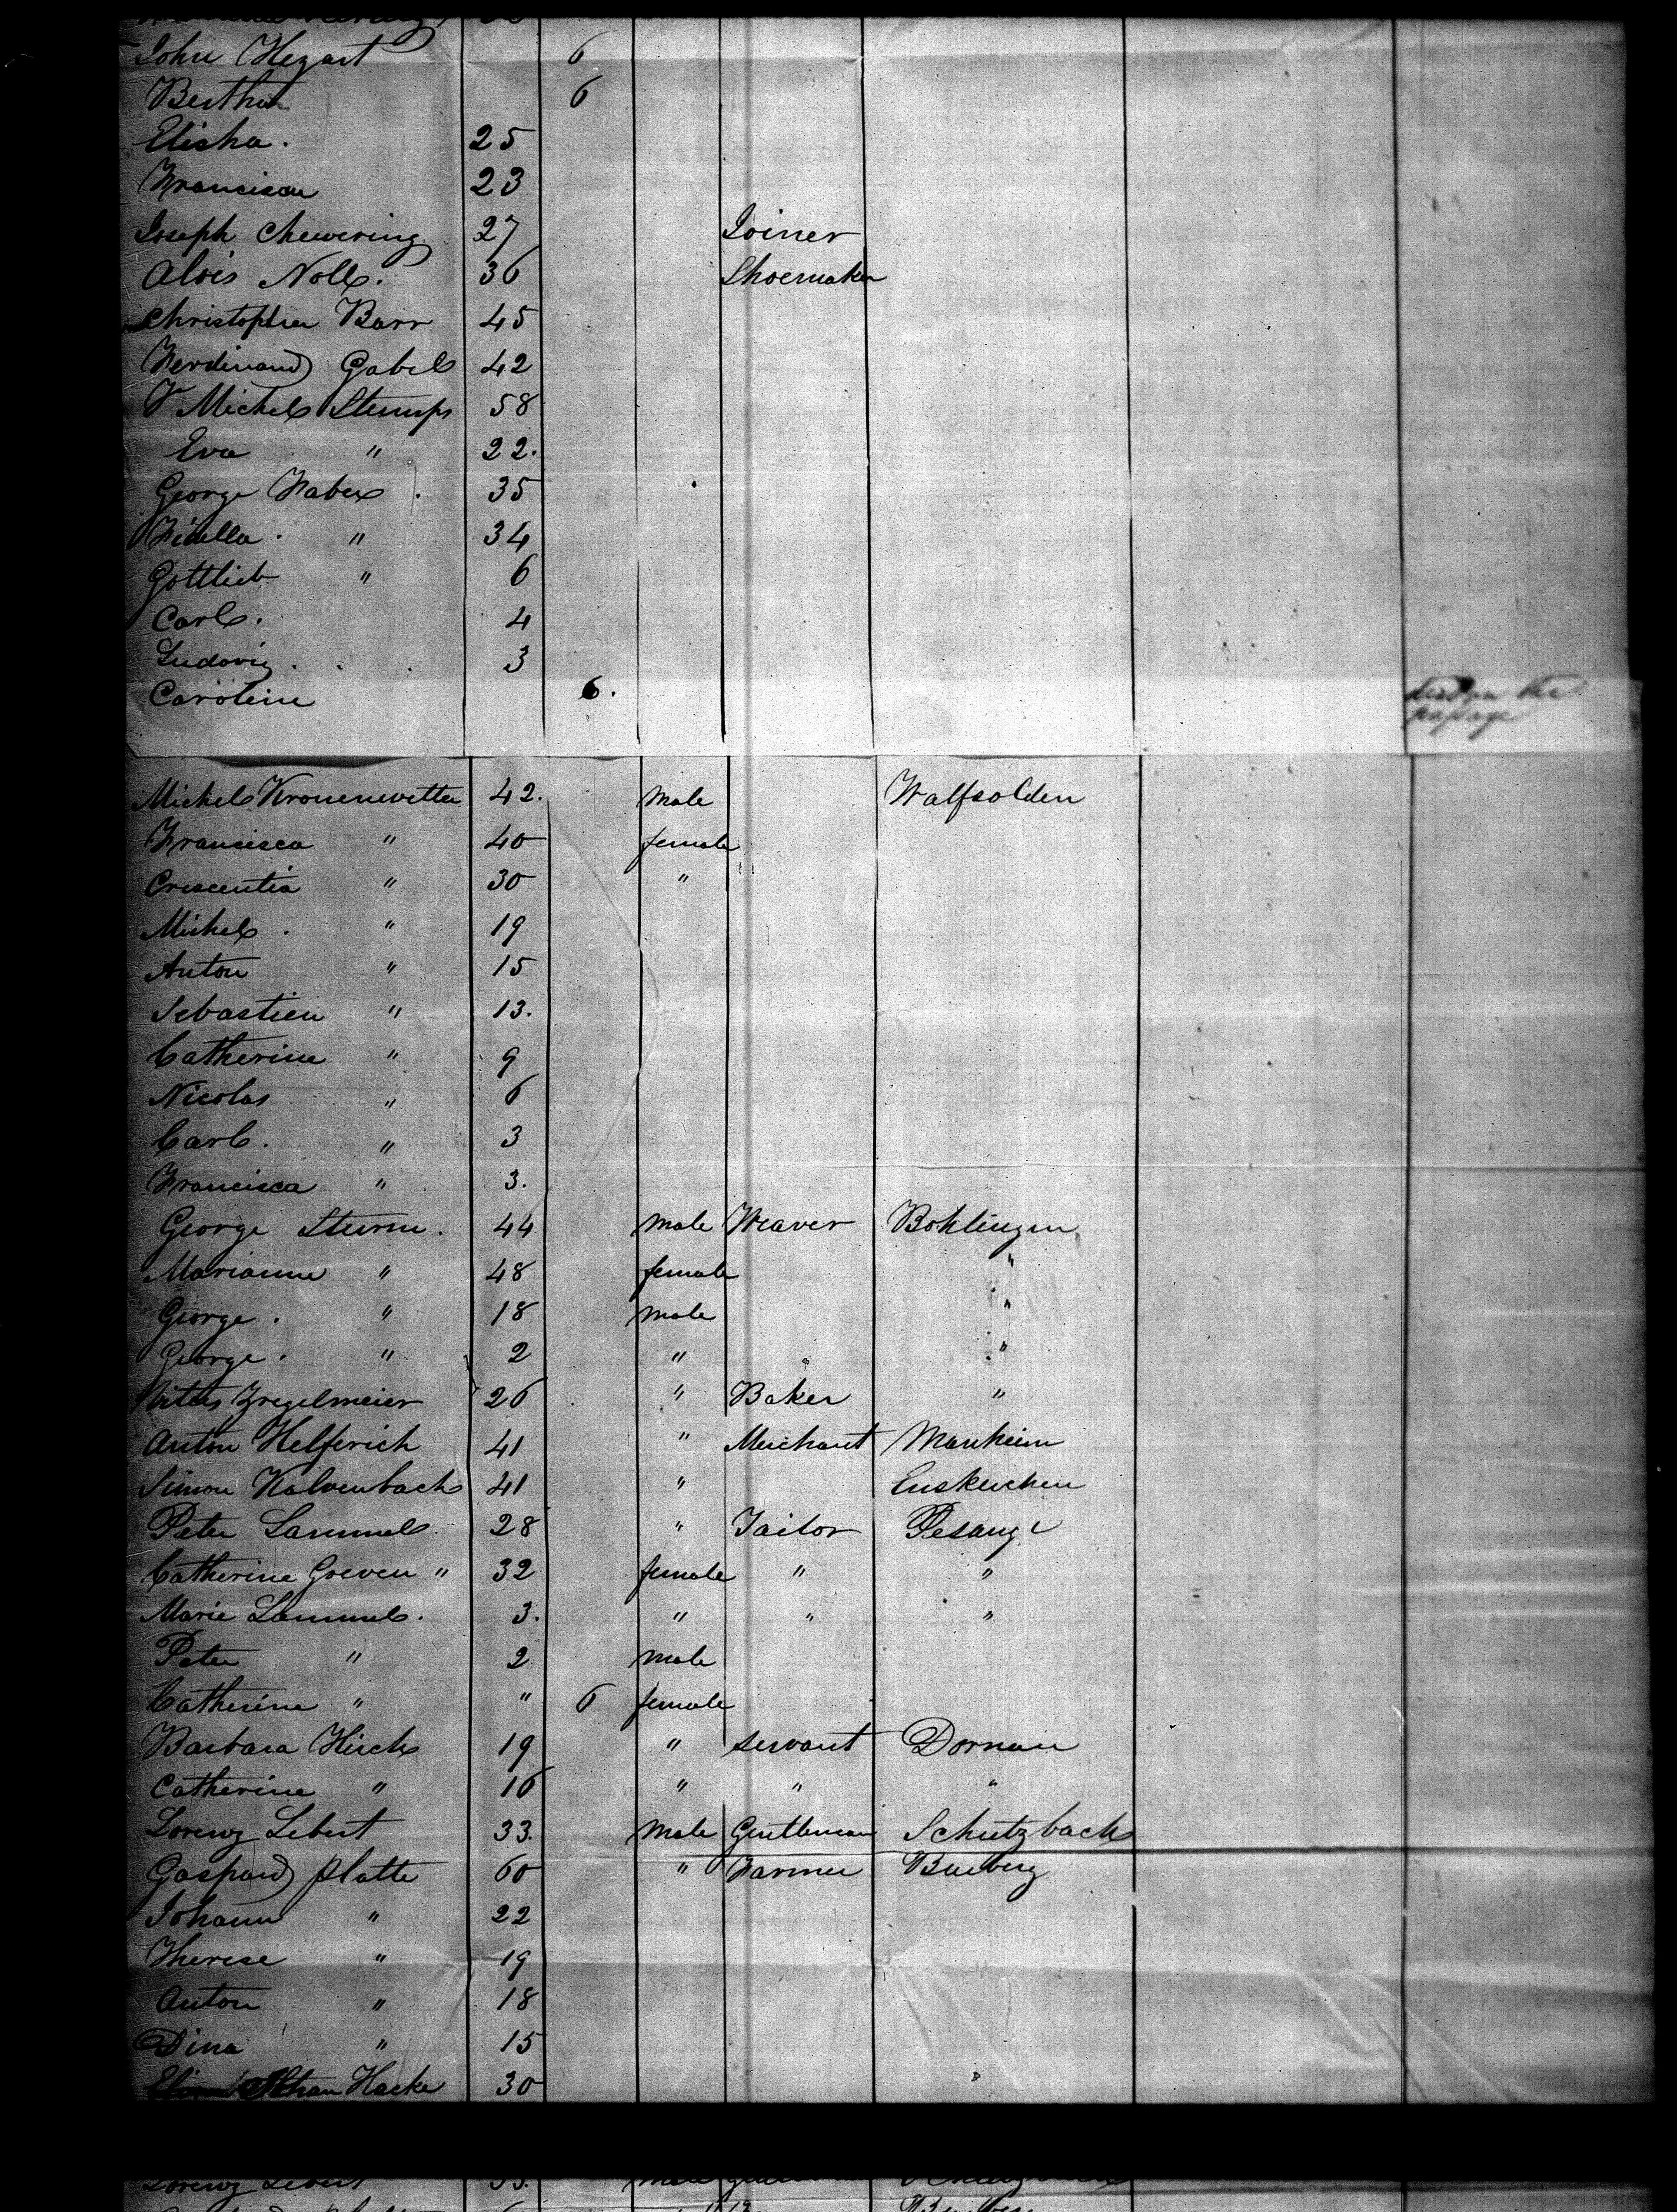 John Hegart 6
Bertha 6
Elisha. 25
Francisca 23
Joseph Chewering 27 Joiner
Alois Noll. 36 Shoemaker
Christopher Barr 45
Ferdinand Gabel 42
Michel Stumps 58
Eva " 22.
George Faber 35
" 34
Gottlieb " 6
Carl. 4
Ludovig 3
Caroline 6. died on the
passage
Michel Kronenwetter 42. Male Walfsolden
Francisca " 40 female
Crescentia " 30 "
Michel. " 19
Anton " 15
Sebastien " 13.
Catherine " 9
Nicolas " 6
Carl. " 3
Francisca " 3.
George Sturm. 44 Male Weaver Bohlingen
Marianne " 48 female "
George. " 18 Male "
George. " 2 " "
Vitus Zregelmeier 26 " Baker "
Anton Helferich 41 " Merchant Manheim
Simon Kalvenbach 41 " Euskirchen
Peter Lammel 28 " Tailor
Catherine Greven " 32 female " "
Marie Lammel. 3. " " "
Peter " 2 Male
Catherine " " 6 female
Barbara Hirch 19 " servant Dornau
Catherine " 16 " " "
Lorenz Lebert 33. Male Gentleman Schutzbach
Gaspard Platte 60 " Farmer
Johann " 22
Therese " 19
Anton " 18
Dina " 15
Hacke 30
Lorenz Lebert 33.